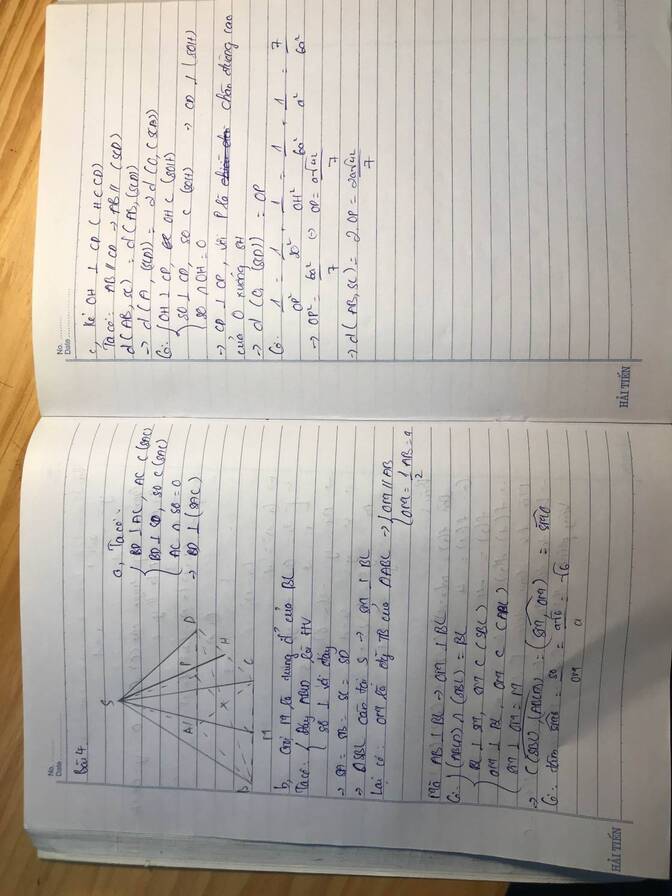 No.
Date
Bài 4.
S
A
P
D
H
B
C
M
a, Ta có:
{ BD ⊥ AC, AC ⊂ (SAC)
BD ⊥ SO, SO ⊂ (SAC)
AC ∩ SO = O
→ BD ⊥ (SAC)
b, Gọi M là trung đ' của BC
Ta có: { đáy ABCD là HV
SO ⊥ với đáy
→ SA = SB = SC = SD
→ ΔSBC cân tại S → SM ⊥ BC
Lại có: OM là đg TB của ΔABC → { OM // AB
OM = 1/2 AB = a
Mà AB ⊥ BC → OM ⊥ BC
Có: { (ABCD) ∩ (SBC) = BC
BC ⊥ SM, SM ⊂ (SBC)
OM ⊥ BC, OM ⊂ (ABC)
SM ⊥ OM = M
→ ((SBC), (ABCD)) = (SM, OM) = SMO
Có: tan SMO = SO/OM = a√6/a = √6
HẢI TIẾN
No.
Date
c, Kẻ OH ⊥ CD (H ∈ CD)
Ta có: AB // CD → AB // (SCD)
d(AB, SC) = d(AB, (SCD))
→ d(A, (SCD)) = 2 d(O, (SCD))
Có: { OH ⊥ CD, OH ⊂ (SOH)
SO ⊥ CD, SO ⊂ (SOH) → CD ⊥ (SOH)
SO ∩ OH = O
→ CD ⊥ OP, với P là chân đường cao
của O xuống SH
→ d(O, (SCD)) = OP
Có: 1/OP² = 1/SO² + 1/OH² = 1/6a² + 1/a² = 7/6a²
→ OP² = 6a²/7 (→ OP = a√42/7
→ d(AB, SC) = 2.OP = 2a√42/7
HẢI TIẾN